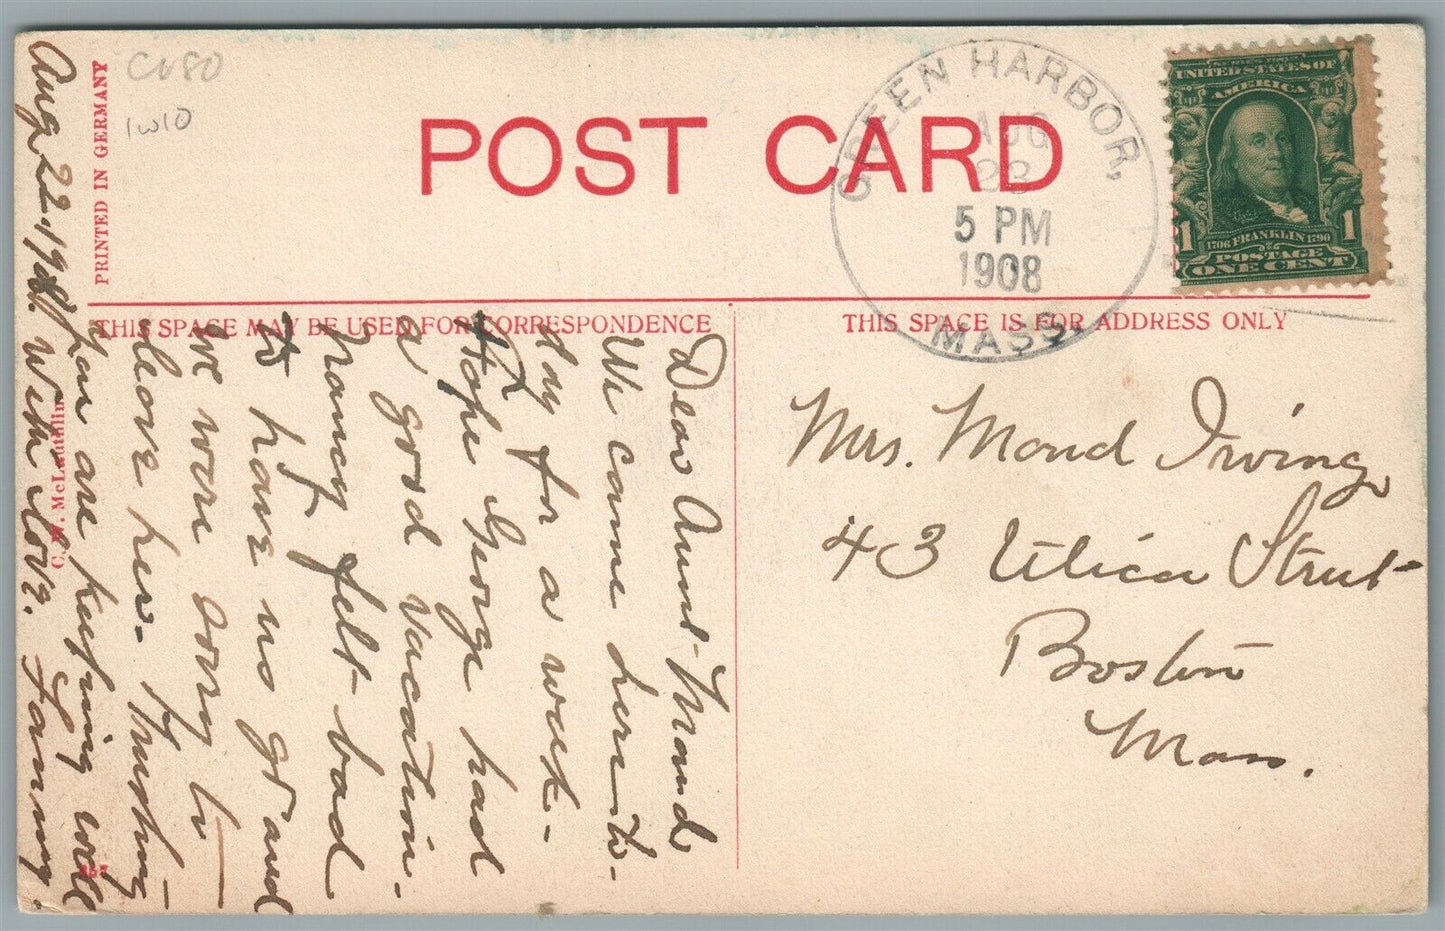 CV80
1w10
PRINTED IN GERMANY
POST CARD
GREEN HARBOR,
AUG
23
5 PM
1908
MASS.
SERIES 1902
UNITED STATES OF
AMERICA
1706 FRANKLIN 1790
1 1
POSTAGE
ONE CENT
THIS SPACE MAY BE USED FOR CORRESPONDENCE
THIS SPACE IS FOR ADDRESS ONLY
Mrs. Maud Irving
43 Utica Street
Boston
Mass.
Dear Aunt Maud
We came here to-
day for a week-
Hope George had
a good vacation.
felt bad
to have us go and
we were sorry to
leave her. Trusting
you are keeping well
Aug. 22. 1908. With love.
C. W. McLauthlin